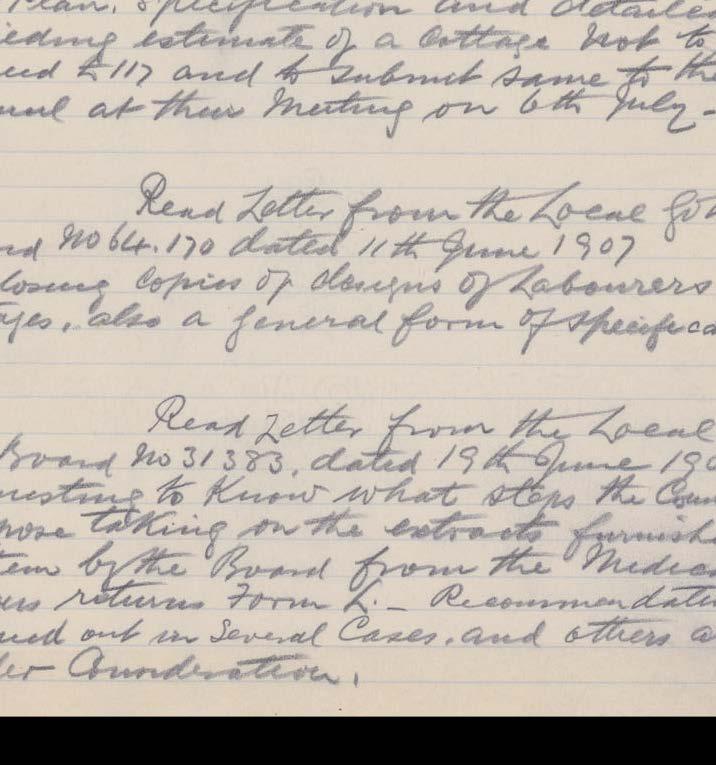 Plan, Specification and detailed
eeding estimate of a Cottage Not to
eed £117 and to Submit same to the
ncil at their Meeting on 6th July -
Read Letter from the Local Gov
rd No 64.170 dated 11th June 1907
closing Copies of designs of Labourers
ages, also a general form of Specifica
Read Letter from the Local
Board No 31383, dated 19th June 190
uesting to Know what steps the Coun
pose taking on the extracts furnishe
tem by the Board from the Medica
ers returns Form L. - Recommendatio
ried out in Several Cases, and others a
der Consideration.